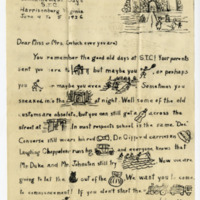 S.T.C.
Harrisonburg Virginia
June 4 to 8 1936
Dear Miss or Mrs. (which ever you are)
You remember the good old days at S.T.C.! Your parents
sent you here to but maybe you or perhaps
you maybe you were Sometimes you
sneaked in the at night. Well some of the old
customs are obsolete, but you can still go across the
street at In most respects school is the same. Doc'
Converse still wears his red Dr. Gifford carries on
Laughing Chappalear runs by and everyone knows that
Mr. Duke and Mr. Johnston still try Now we are
going to let the out of the We want you to come
to commencement! If you don't start the